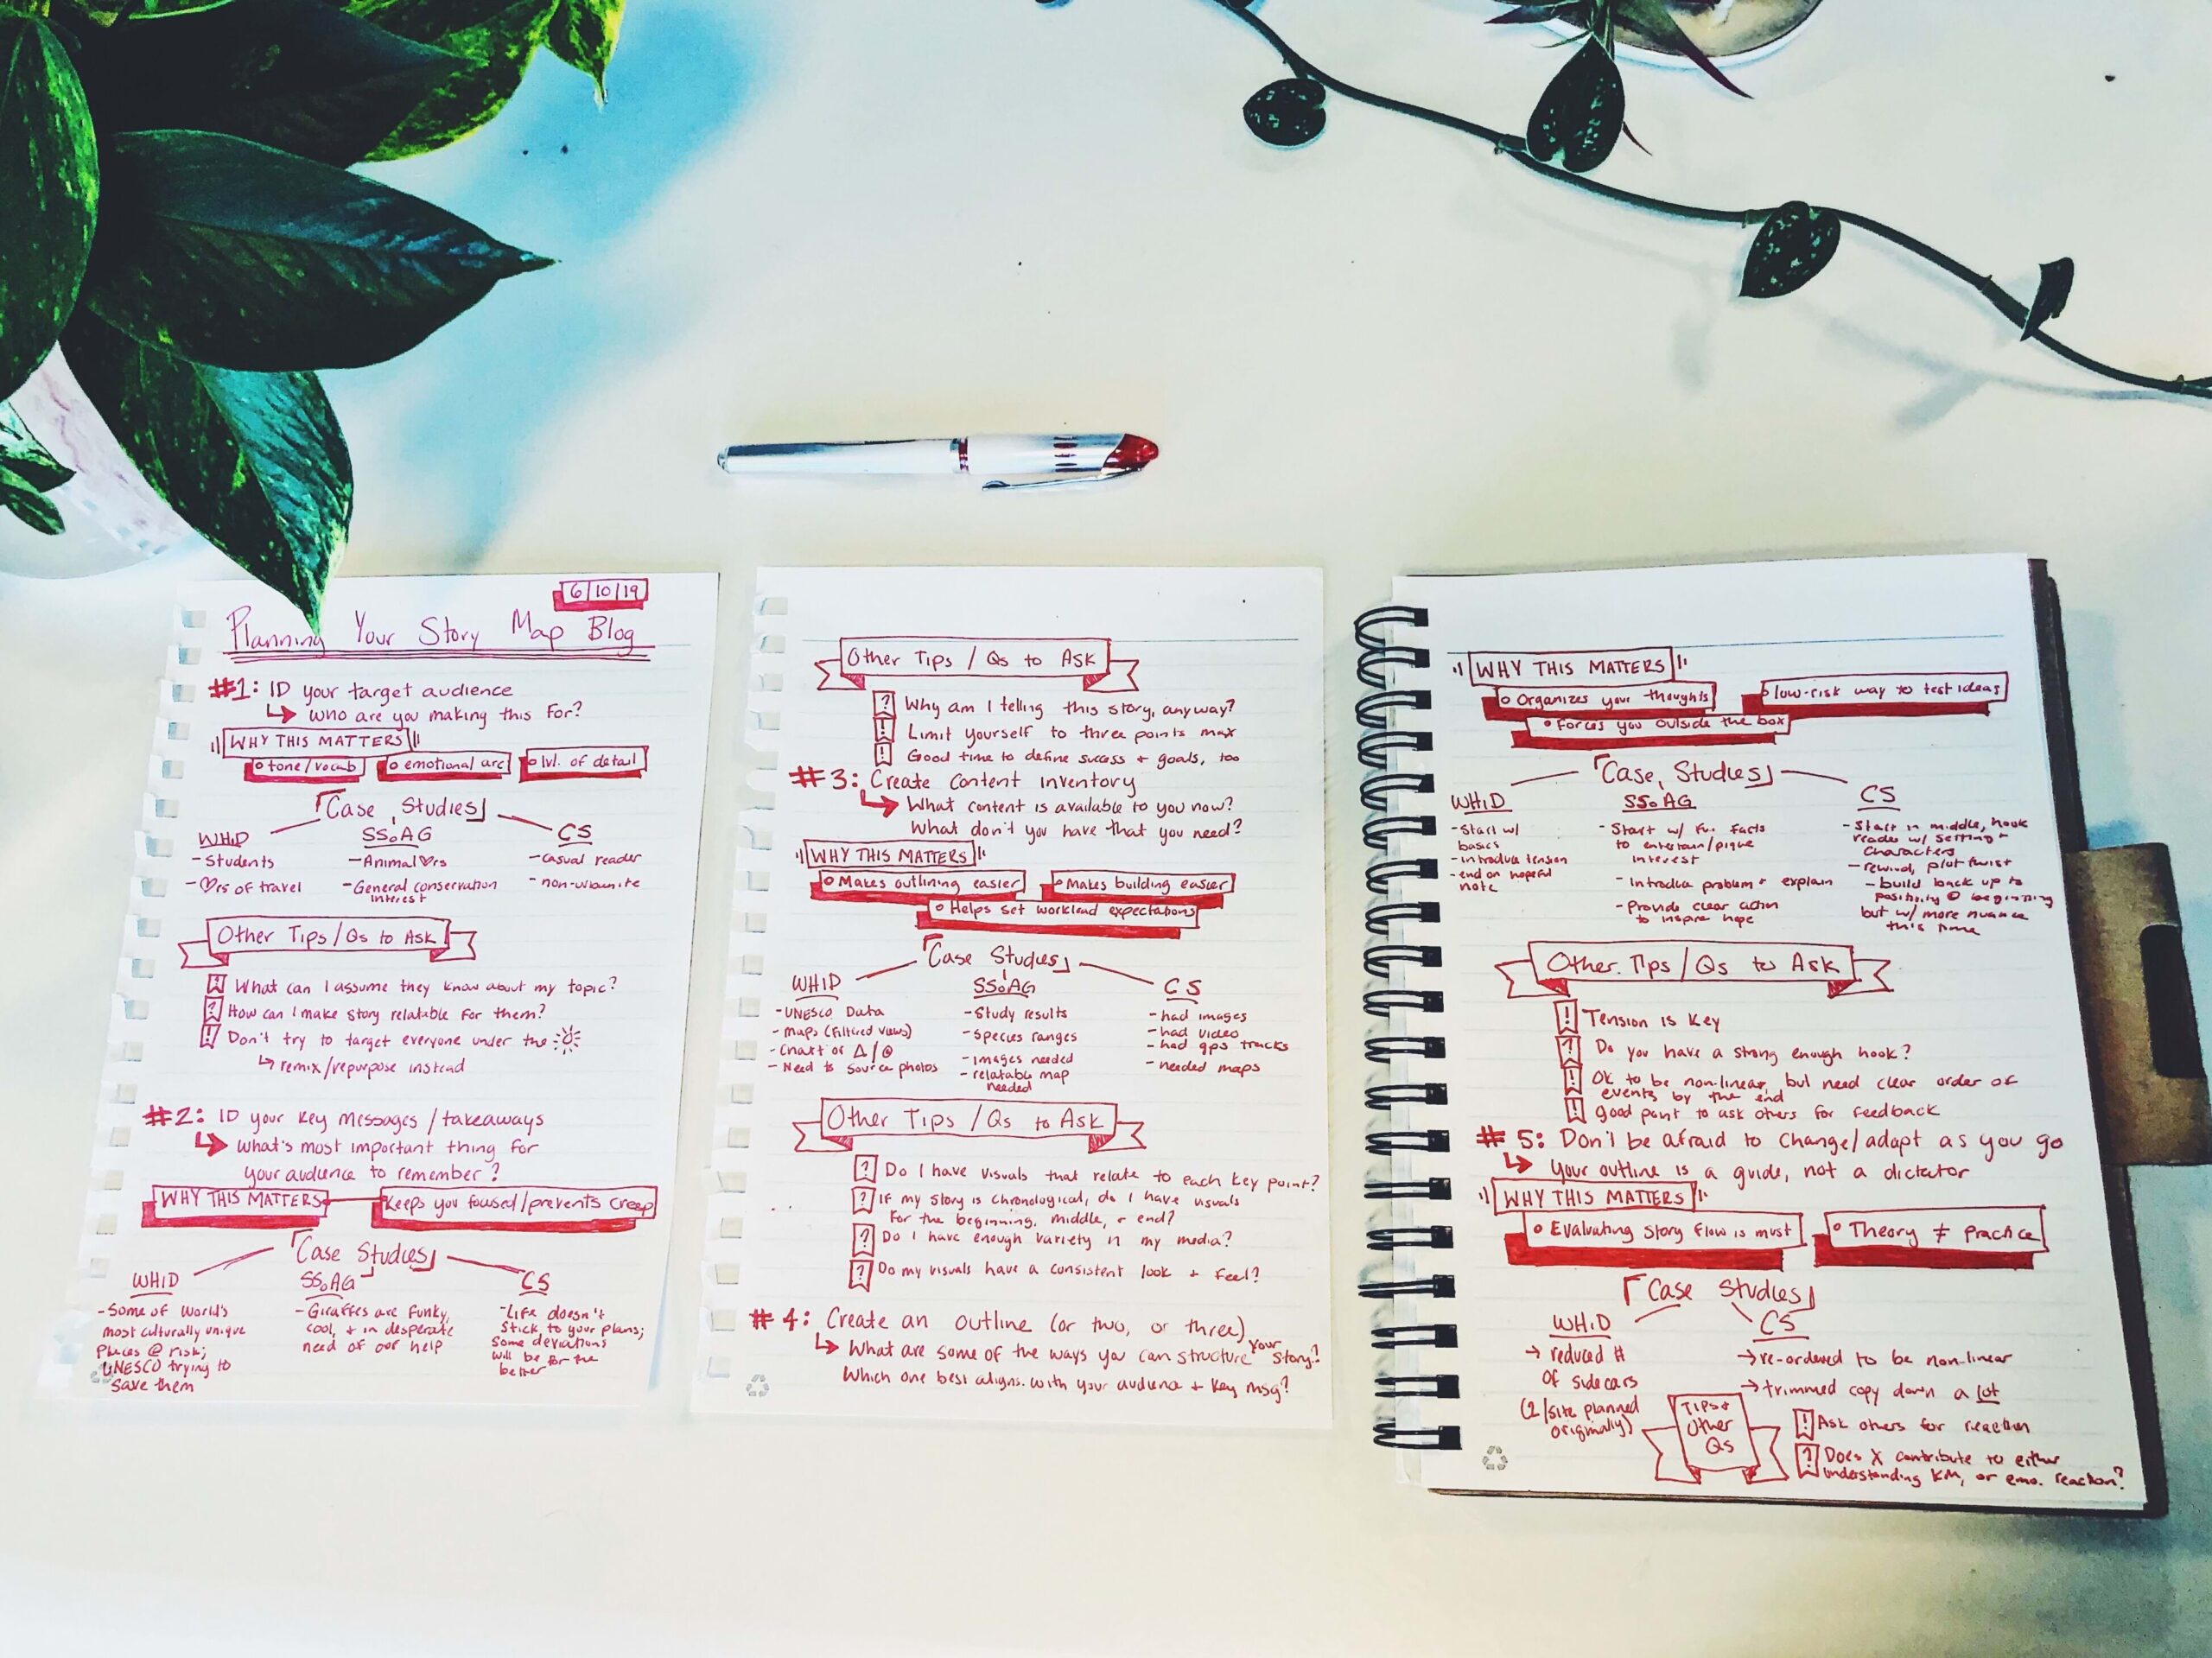 6/10/19
Planning Your Story Map Blog
#1: ID your target audience
↳ Who are you making this for?
WHY THIS MATTERS
• tone/vocab • emotional arc • lvl. of detail
Case Studies
WHiD
- Students
- ♡rs of travel
SSoAG
- Animal ♡rs
- General conservation
interest
CS
- casual reader
- non-urbanite
Other Tips/Qs to Ask
? What can I assume they know about my topic?
? How can I make story relatable for them?
! Don't try to target everyone under the ☀
↳ remix/repurpose instead
#2: ID your key messages/takeaways
↳ What's most important thing for
your audience to remember?
WHY THIS MATTERS
Keeps you focused/prevents creep
Case Studies
WHiD
- Some of World's
most culturally unique
places @ risk;
UNESCO trying to
save them
SSoAG
- Giraffes are funky,
cool, + in desperate
need of our help
CS
- Life doesn't
stick to your plans;
some deviations
will be for the
better
Other Tips / Qs to Ask
? Why am I telling this story, anyway?
! Limit yourself to three points max
! Good time to define success + goals, too
#3: Create Content Inventory
↳ What content is available to you now?
What don't you have that you need?
WHY THIS MATTERS
• Makes outlining easier • Makes building easier
• Helps set workload expectations
Case Studies
WHiD
- UNESCO Data
- Maps (filtered views)
- Chart of Δ/@
- Need to source photos
SSoAG
- Study results
- Species ranges
- images needed
- relatable map
needed
CS
- had images
- had video
- had gps tracks
- needed maps
Other Tips / Qs to Ask
? Do I have visuals that relate to each key point?
? If my story is chronological, do I have visuals
for the beginning, middle, + end?
? Do I have enough variety in my media?
? Do my visuals have a consistent look + feel?
#4: Create an outline (or two, or three)
↳ What are some of the ways you can structure your story?
Which one best aligns with your audience + key msg?
WHY THIS MATTERS
• Organizes your thoughts • low-risk way to test ideas
• Forces you outside the box
Case Studies
WHiD
- Start w/
basics
- introduce tension
- end on hopeful
note
SSoAG
- Start w/ fun facts
to entertain/pique
interest
- Introduce problem + explain
- Provide clear action
to inspire hope
CS
- Start in middle, hook
reader w/ setting +
characters
- rewind, plot twist
- build back up to
positivity @ beginning
but w/ more nuance
this time
Other Tips/Qs to Ask
! Tension is key
? Do you have a strong enough hook?
! Ok to be non-linear, but need clear order of
events by the end
! good point to ask others for feedback
#5: Don't be afraid to change/adapt as you go
↳ Your outline is a guide, not a dictator
WHY THIS MATTERS
• Evaluating story flow is must • Theory ≠ practice
Case Studies
WHiD
→ reduced #
of sidecars
(2/site planned
originally)
CS
→ re-ordered to be non-linear
→ trimmed copy down a lot
Tips +
Other
Qs
! Ask others for reaction
? Does X contribute to either
understanding KM, or emo. reaction?